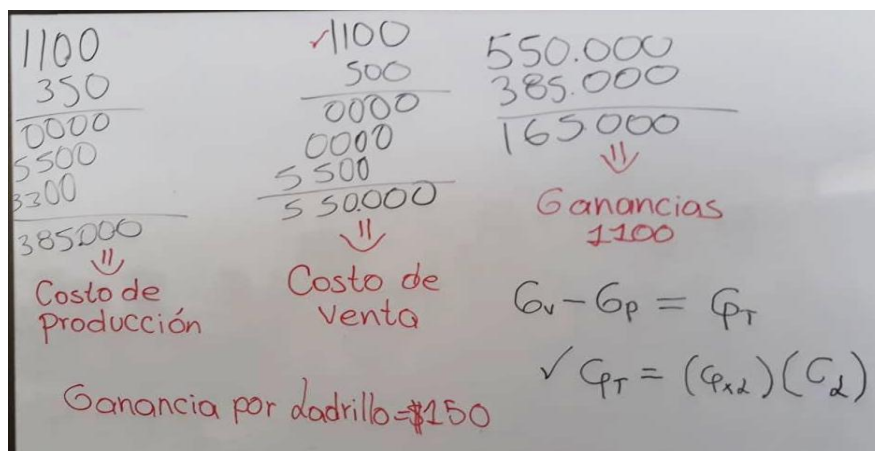 1100
350
0000
5500
3300
385000
Costo de
producción
✓1100
500
0000
0000
5500
550.000
Costo de
venta
550.000
385.000
165000
Ganancias
1100
Gv - Gp = GpT
✓ GpT = (Gpxd)(Cd)
Ganancia por Ladrillo=$150